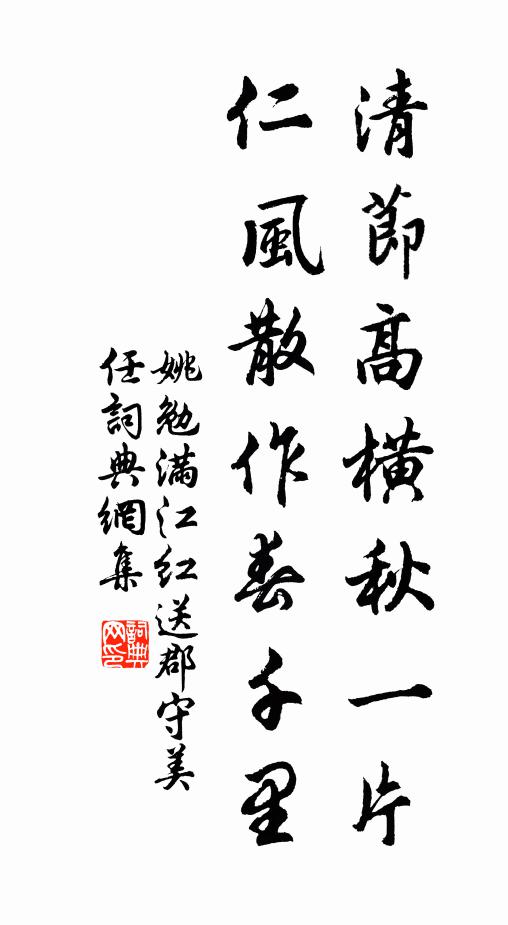 清節高橫秋一片
仁風散作春千里
姚勉滿江紅送郡守美
任詞典網集
詞典
网印